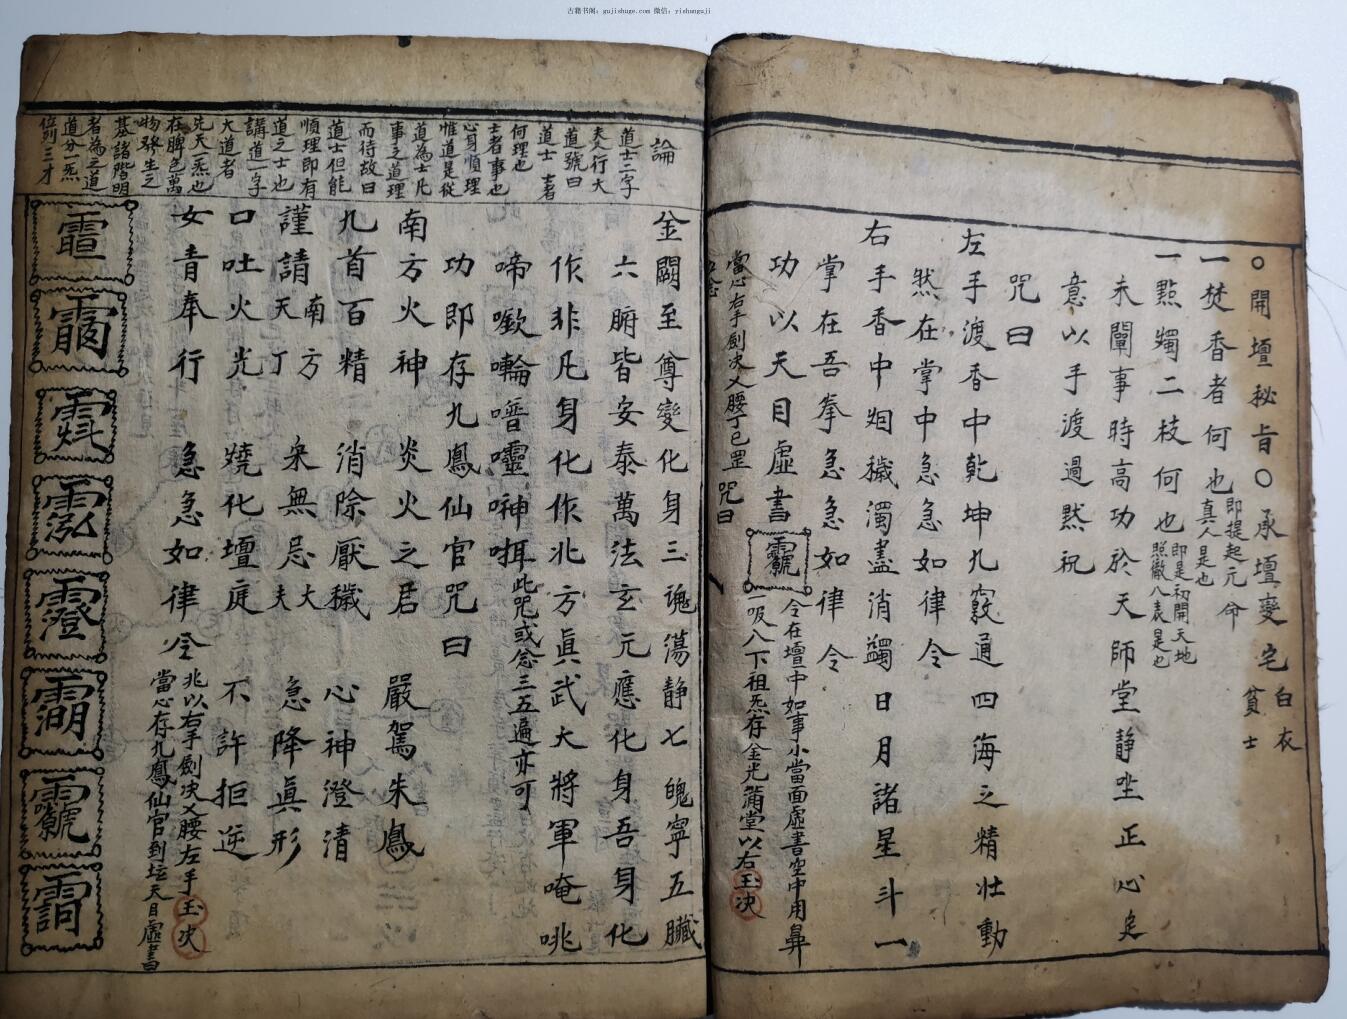 古籍书阁：gujishuge.com 微信：yishanguji
○開壇秘旨○承壇變宅 白衣貧士
一焚香者何也 即提起元命真人是也
一點燭二枝何也 即是初開天地照徹八表是也
未闡事時高功於天師堂靜坐正心定
意以手渡過默祝
咒曰
左手渡香中乾坤九竅通四海之精壯動
然在掌中急急如律令
右手香中烟穢濁盡消蠲日月諸星斗一
掌在吾拳急急如律令
功以天目虛書 令在壇中如事小當面虛書空中用鼻
一吸八下祖炁存金光滿堂以右玉决
當心右手劍决乂腰丁巳罡 咒曰
金闕至尊變化身三魂蕩静七魄寧五臟
六腑皆安泰萬法玄元應化身吾身化
作非凡身化作北方眞武大將軍唵咷
啼噷輪噾囈呻咡 此咒或念三五遍亦可
功即存九鳳仙官咒曰
南方火神 炎火之君 嚴駕朱鳳
九首百精 消除厭穢 心神澄清
謹請南方天丁 朵無忌大夫 急降眞形
口吐火光 燒化壇庭 不許拒逆
女青奉行 急急如律令 兆以右手劍决乂腰左手玉决
當心存九鳳仙官到坛天目虛書
論
道士二字
夫行大
道號曰
道士 士者
何理也
士者事也
心身順理
惟道是從
道為士凡
事之道理
而待故曰
道士但能
順理即有
道之士也
講道一字
大道者
先天一炁也
在脾色萬
物發生之
基諸階明
者為之道
道分一炁
位列三才